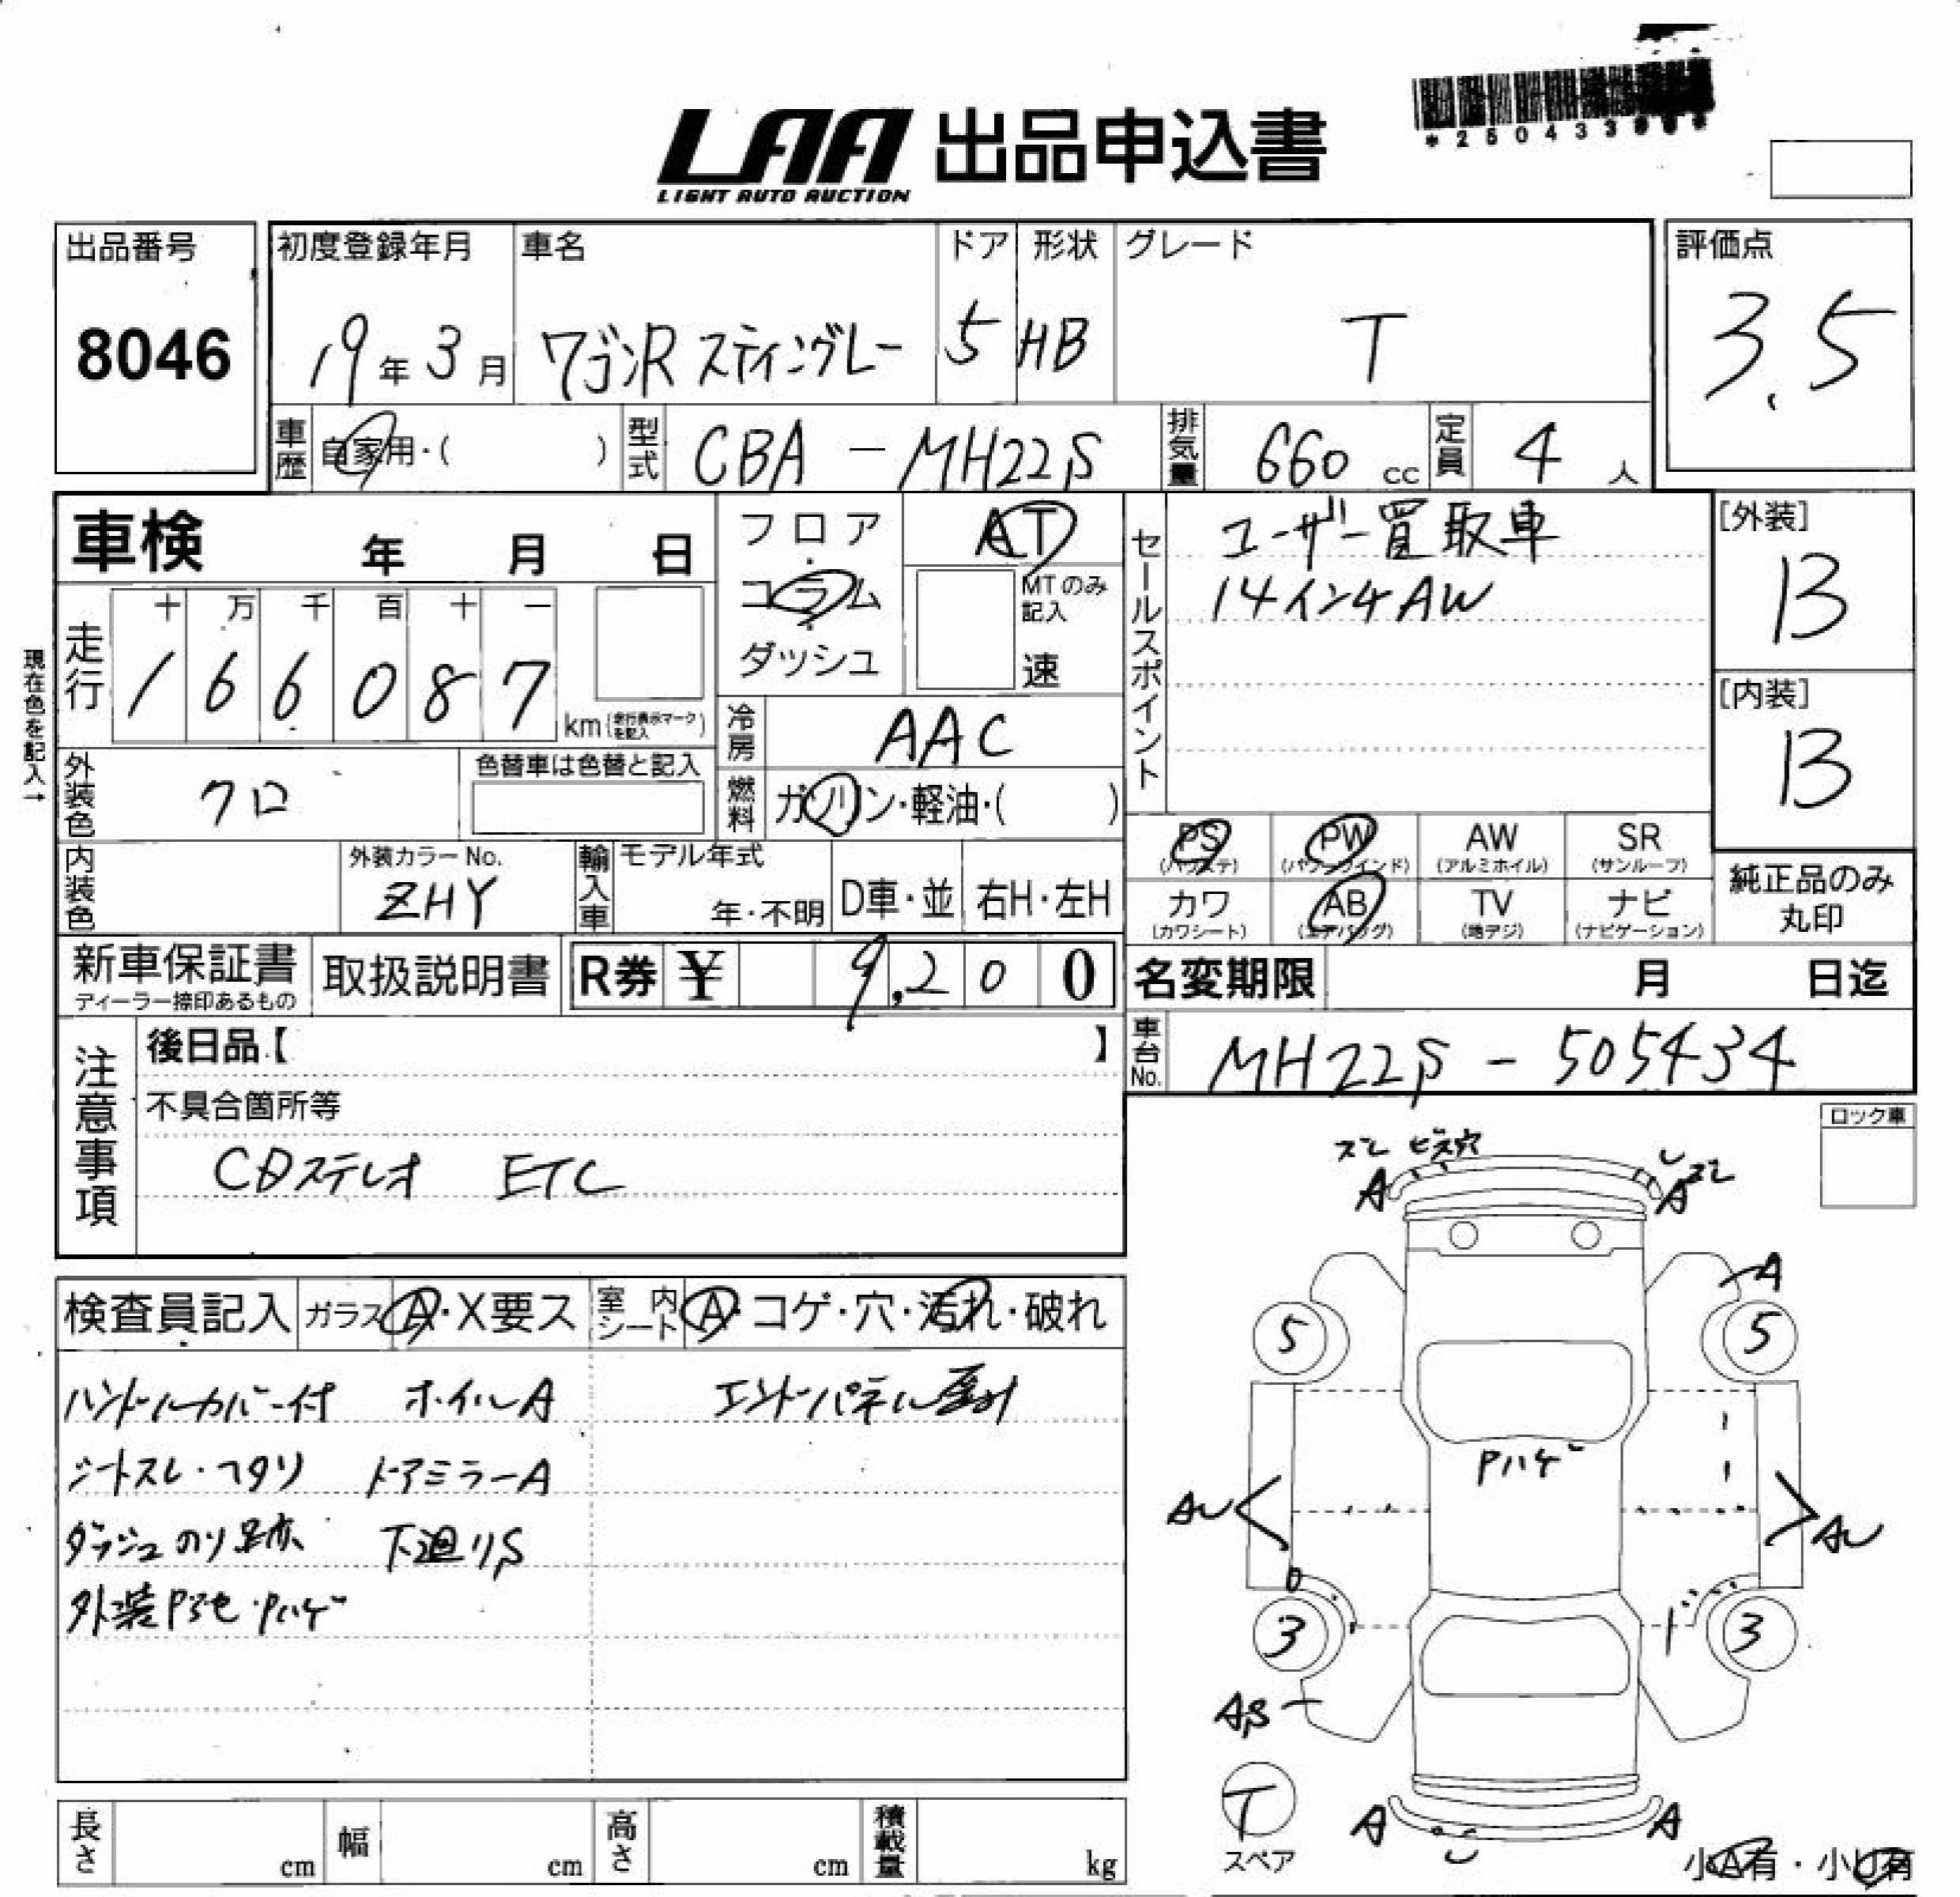 LAA 出品申込書
LIGHT AUTO AUCTION
出品番号
8046
初度登録年月
19年3月
車名
ワゴンR スティングレー
ドア
5
形状
HB
グレード
T
評価点
3.5
車歴
自家用・( )
型式
CBA - MH22S
排気量
660 cc
定員
4 人
車検 年 月 日
現在色を記入→
走行
十 万 千 百 十 一
1 6 6 0 8 7
km (走行表示マークを記入)
フロア・コラム・ダッシュ
AT
MTのみ記入
速
冷房
AAC
燃料
ガソリン・軽油・( )
セールスポイント
ユーザー買取車
14インチAW
[外装]
B
[内装]
B
外装色
クロ
色替車は色替と記入
内装色
外装カラーNo.
ZHY
輸入車
モデル年式
年・不明
D車・並
右H・左H
PS
(パワステ)
PW
(パワーウインド)
AW
(アルミホイル)
SR
(サンルーフ)
カワ
(カワシート)
AB
(エアバッグ)
TV
(地デジ)
ナビ
(ナビゲーション)
純正品のみ
丸印
新車保証書
ディーラー捺印あるもの
取扱説明書
R券 ¥ 9,200
名変期限 月 日迄
車台No.
MH22S - 505434
注意事項
後日品【 】
不具合箇所等
CDステレオ ETC
ロック車
検査員記入
ガラス A・X要ス
室内シート A・コゲ・穴・汚れ・破れ
ハンドルカバー付 ホイルA
エンドパネル歪み
シートスレ・ヘタリ ドアミラーA
ダッシュのリ跡 下廻りS
外装P色・Pハゲ
ズレ ビス穴
A
A ズレ
A
5
5
Pハゲ
AU
AU
3
3
AS
T
スペア
A
A
小A有・小U有
長さ cm
幅 cm
高さ cm
積載量 kg